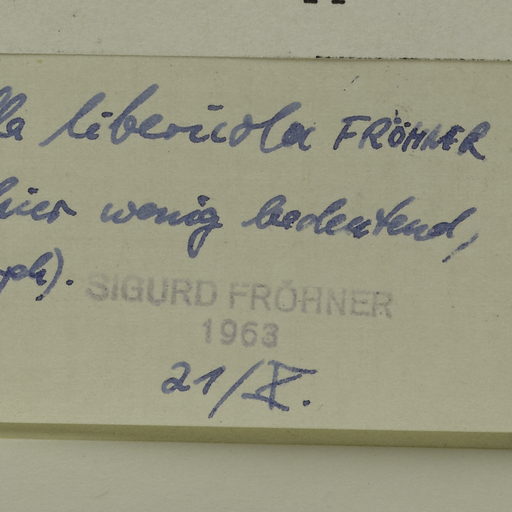 lla libericola FRÖHNER
hier wenig bedeutend,
ph).
SIGURD FRÖHNER
1963
21/X.